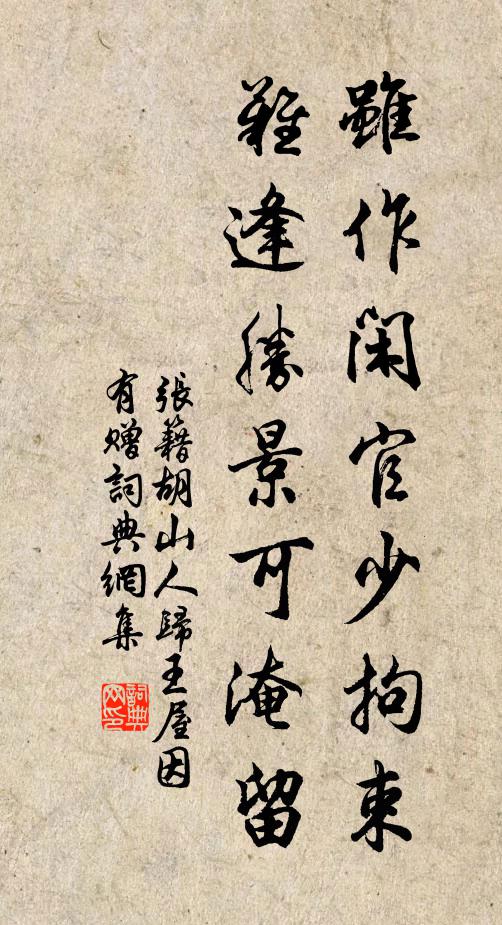 雖作閑官少拘束
難逢勝景可淹留
張籍胡山人歸王屋因
有贈詞典網集
詞典
网印